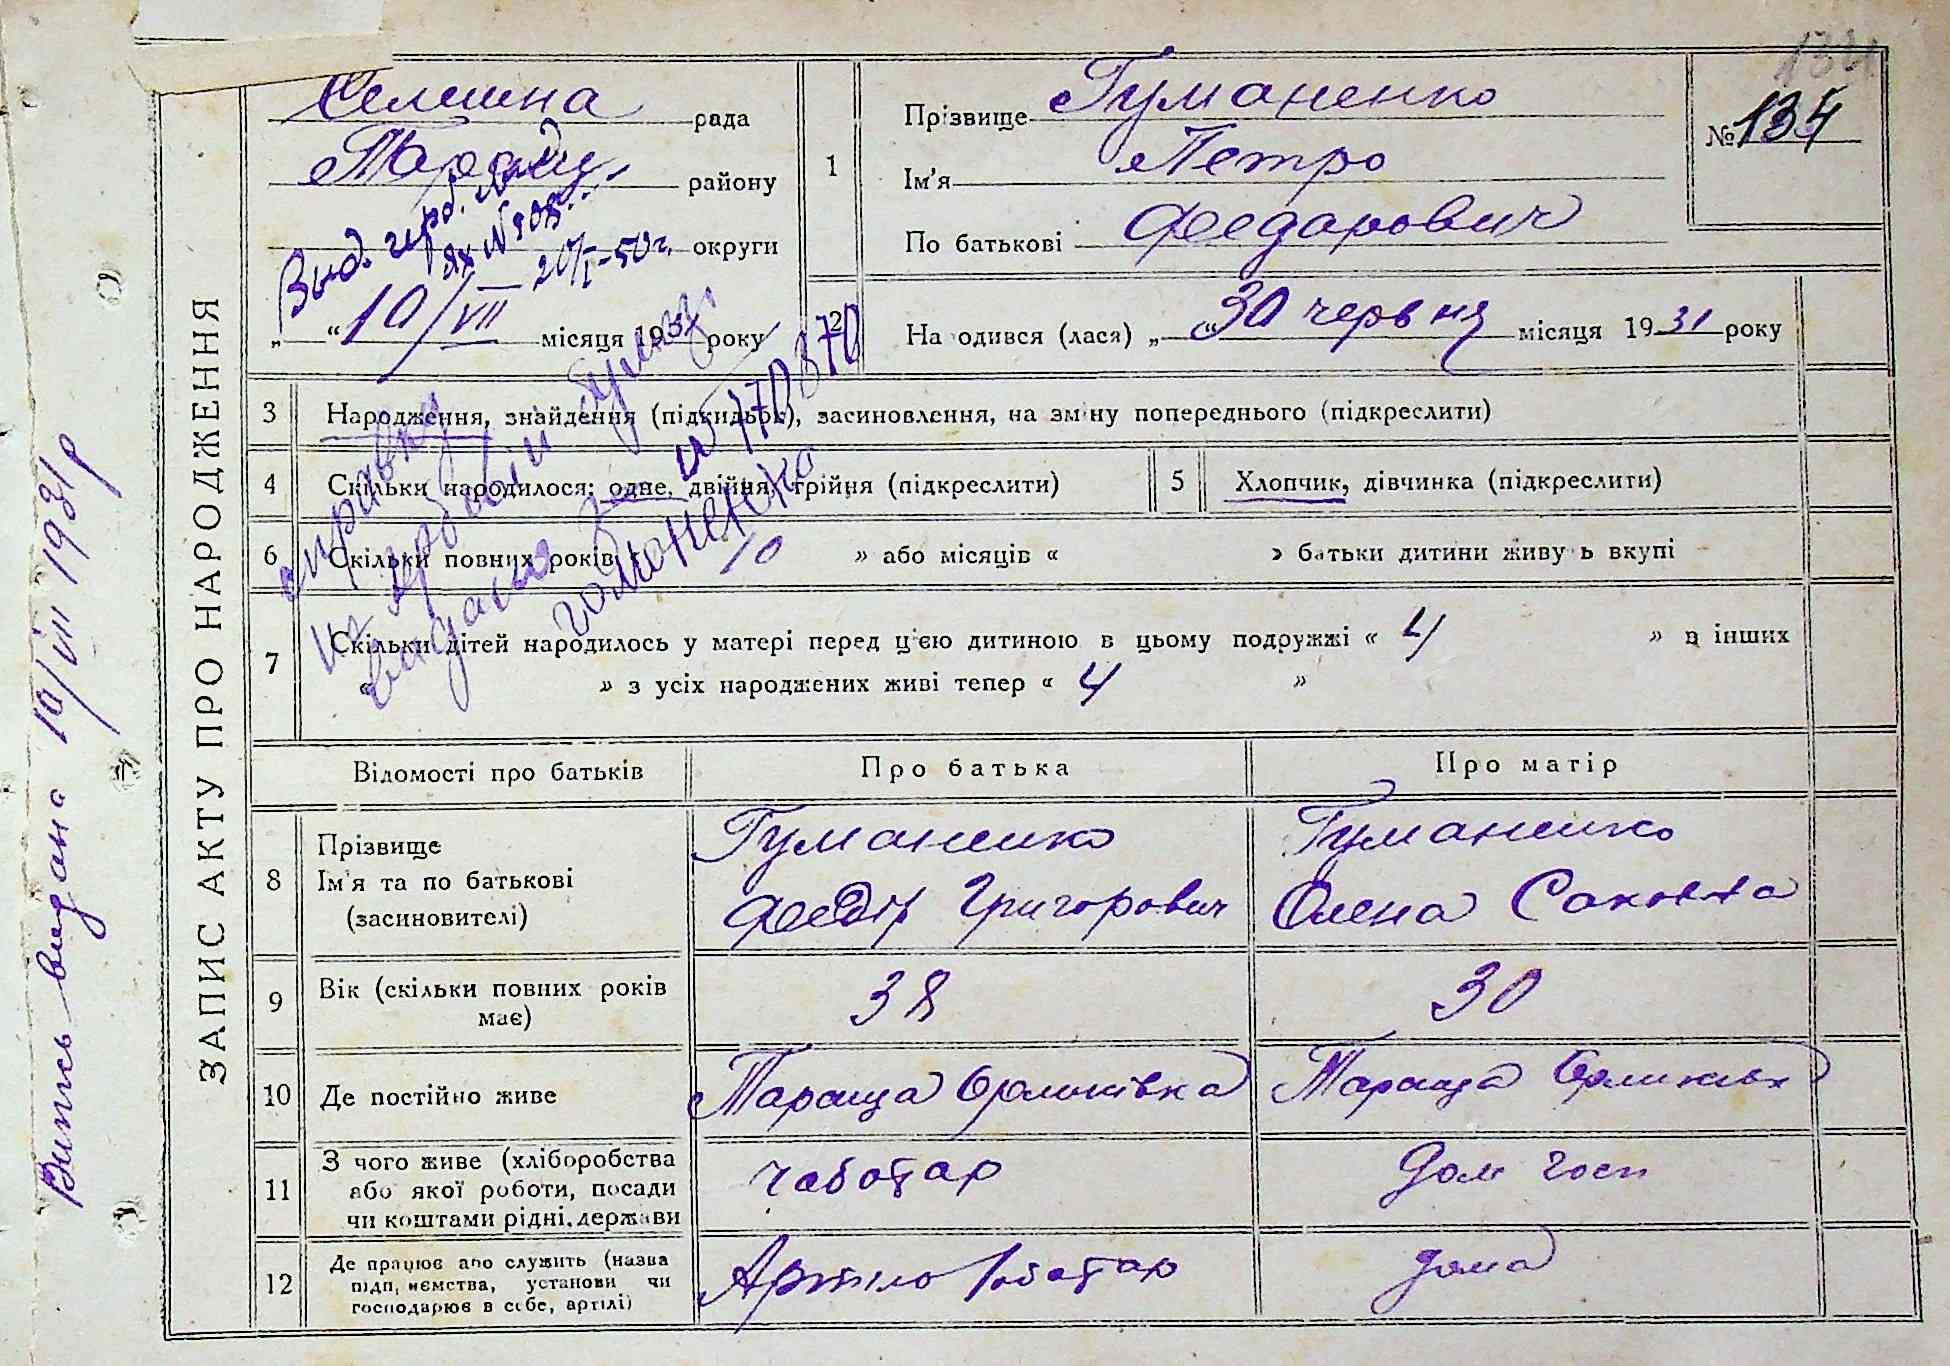 134
ЗАПИС АКТУ ПРО НАРОДЖЕННЯ
Випись видана 10/VIII 1931 р
Селишна рада
Таращ. району
округи
Выд.
20/I-50 г.
„ “ 10/VII місяця 1931 року
1
Прізвище Гуманенко
Ім'я Петро
По батькові Федарович
№ 134
2
На одився (лася) „ “ 30 червня місяця 1931 року
3 Народження, знайдення (підкидьок), засиновлення, на зміну попереднього (підкреслити)
4 Скільки народилося: одне, двійня, трійня (підкреслити)
5 Хлопчик, дівчинка (підкреслити)
6 Скільки повних років « 10 » або місяців « » батьки дитини живу ь вкупі
7 Скільки дітей народилось у матері перед цією дитиною в цьому подружжі « 4 » в інших
« » з усіх народжених живі тепер « 4 »
Відомості про батьків
Про батька
Про матір
8 Прізвище
Ім'я та по батькові
(засиновителі)
Гуманенко
Федір Григорович
Гуманенко
Олена Саковна
9 Вік (скільки повних років
має)
38
30
10 Де постійно живе
Тараща Орликівка
Тараща Орликівк
11 З чого живе (хліборобства
або якої роботи, посади
чи коштами рідні, держави
чаботар
Дом госп
12 Де працює або служить (назва
підп, иємства, установи чи
господарює в себе, артілі)
дома